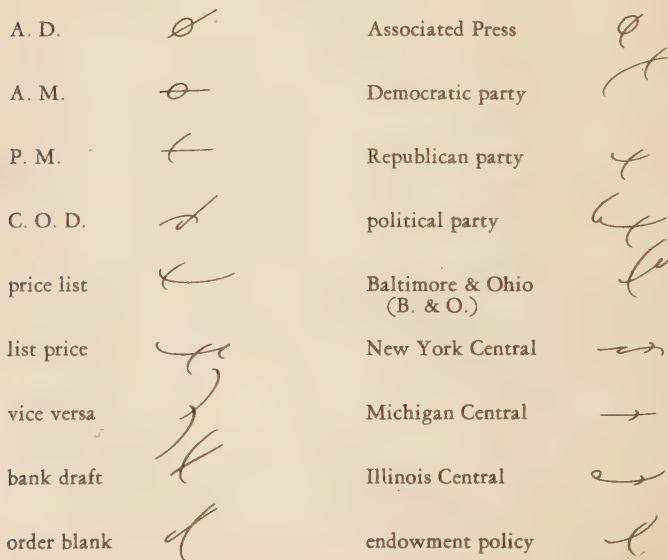 A. D.
A. M.
P. M.
C. O. D.
price list
list price
vice versa
bank draft
order blank
Associated Press
Democratic party
Republican party
political party
Baltimore & Ohio
(B. & O.)
New York Central
Michigan Central
Illinois Central
endowment policy